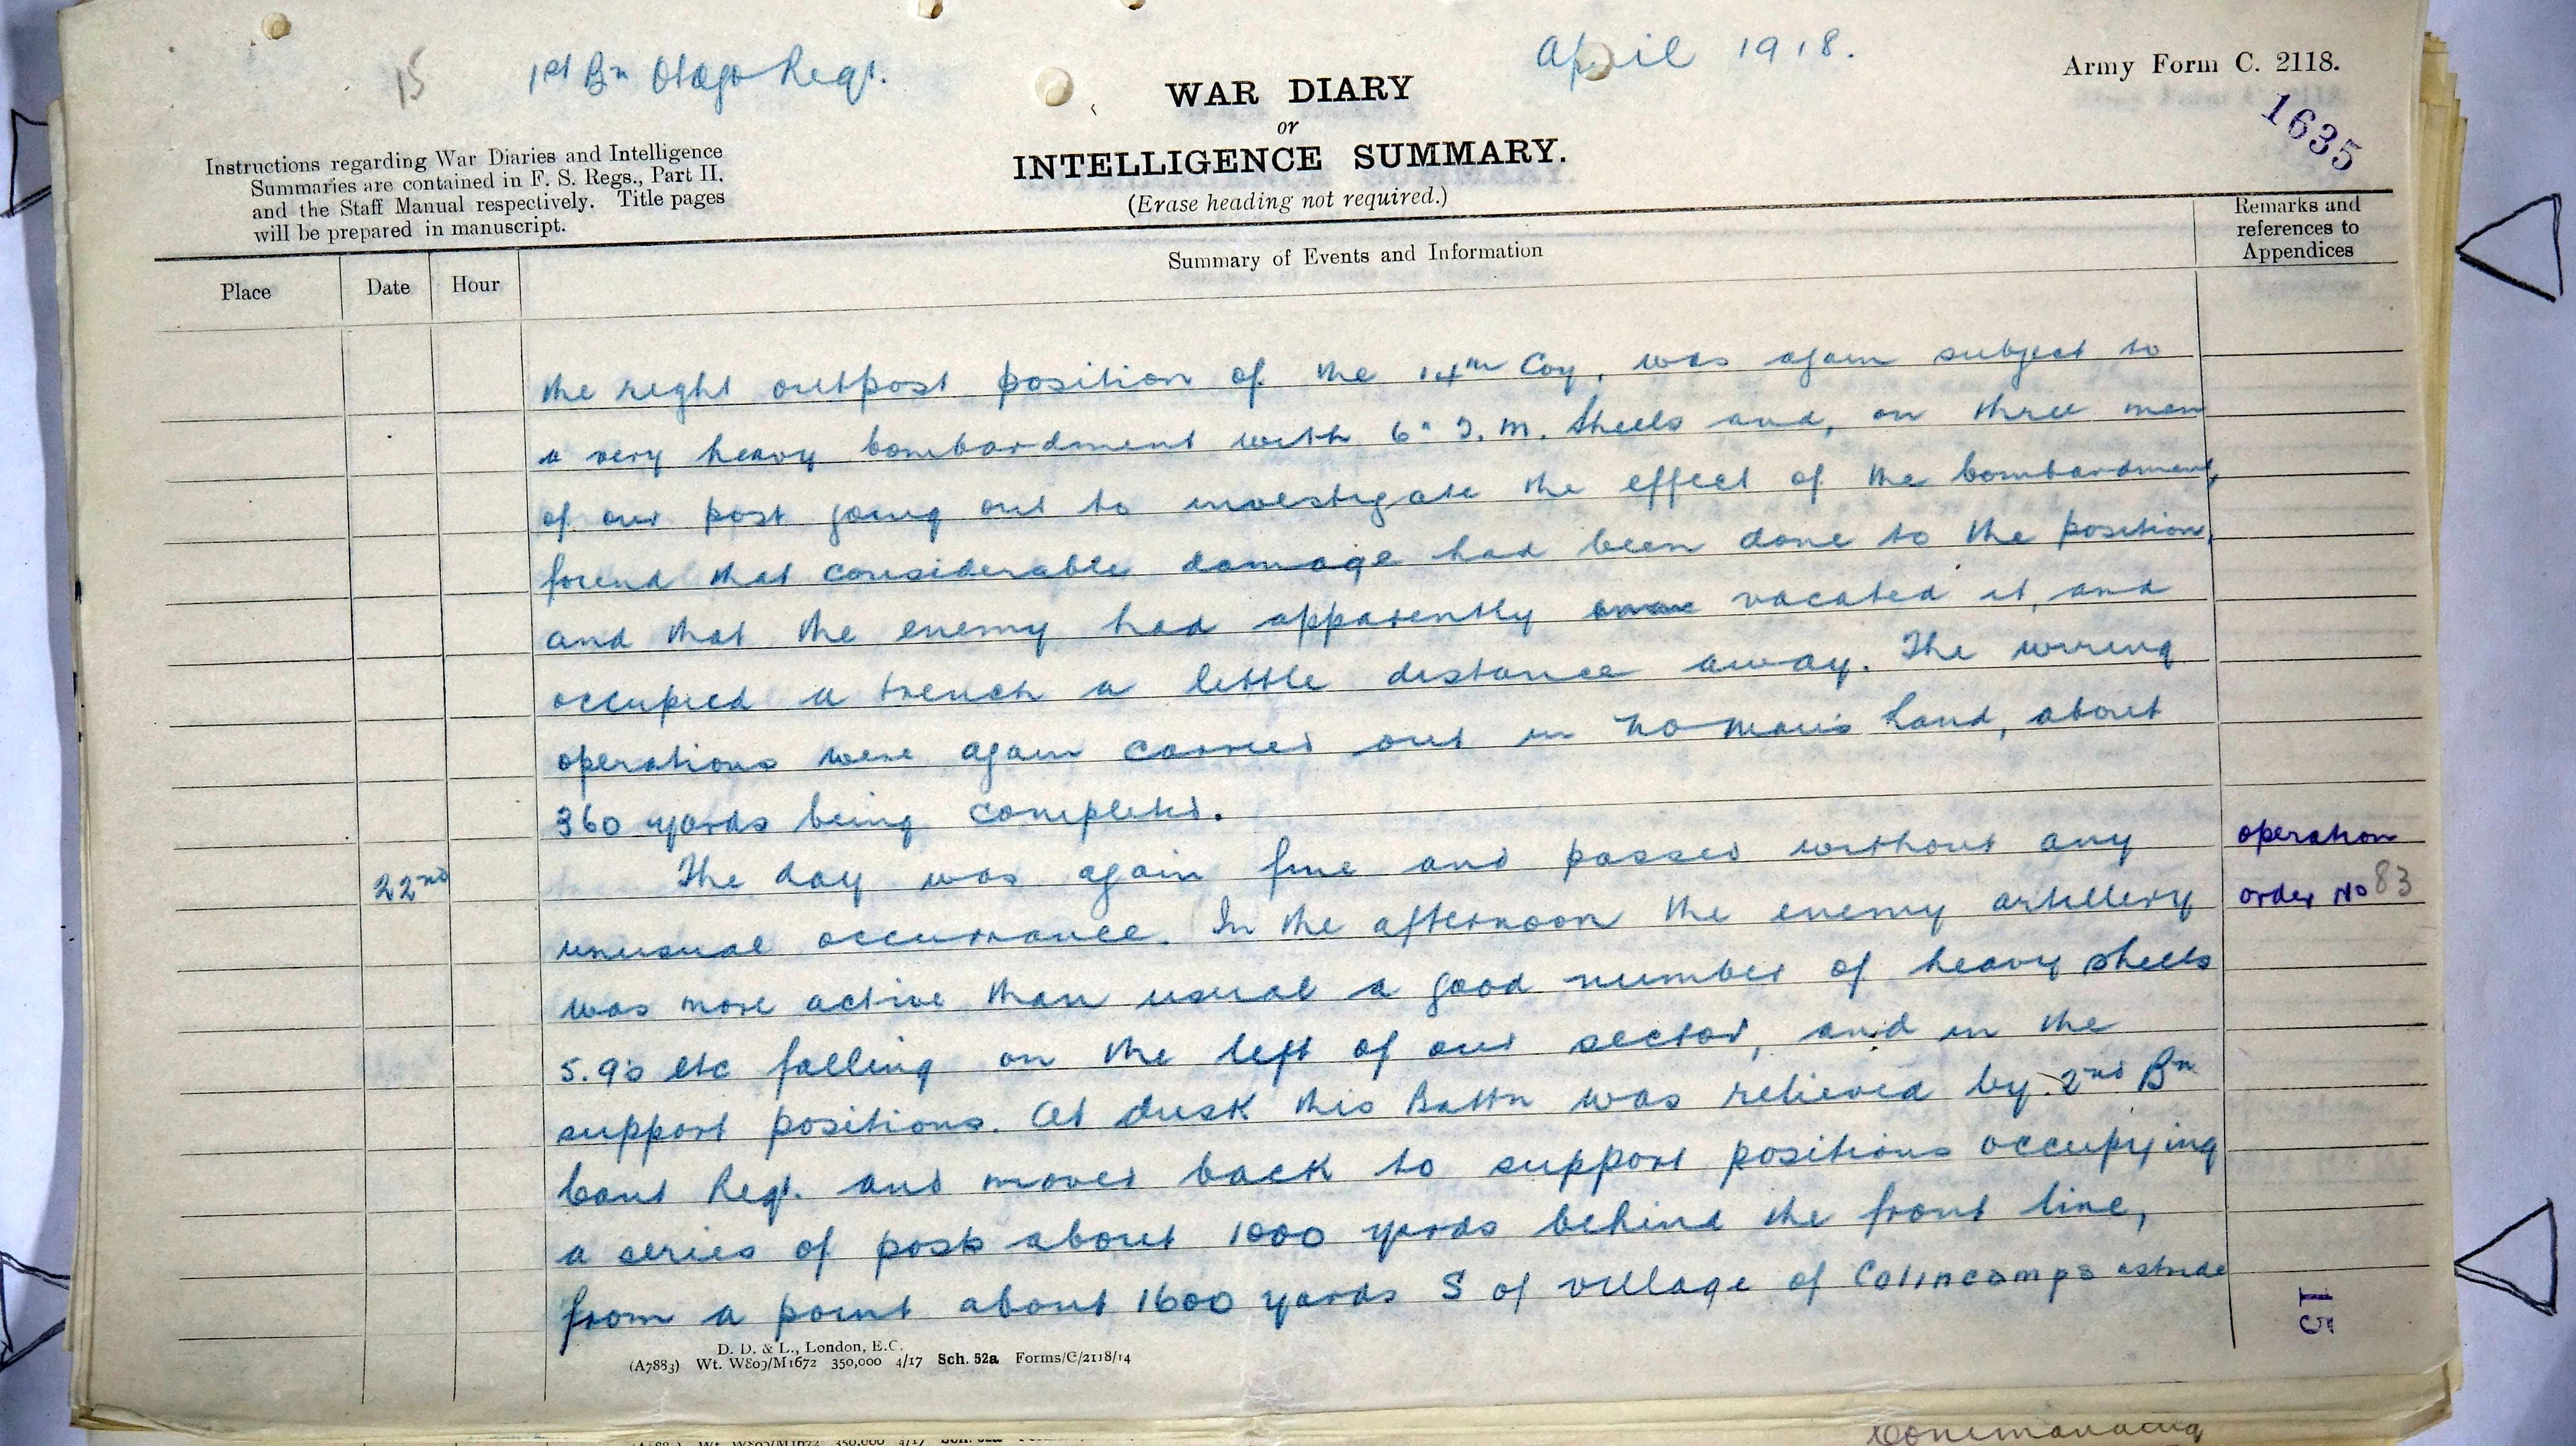 15
1st Bn Otago Regt.
April 1918.
Army Form C. 2118.
1635
WAR DIARY
or
INTELLIGENCE SUMMARY.
(Erase heading not required.)
Instructions regarding War Diaries and Intelligence
Summaries are contained in F. S. Regs., Part II.
and the Staff Manual respectively. Title pages
will be prepared in manuscript.
Place
Date
Hour
Summary of Events and Information
Remarks and
references to
Appendices
the right outpost position of the 14th Coy, was again subject to
a very heavy bombardment with 6" T.M. Shells and, on three men
of our post going out to investigate the effect of the bombardment,
found that considerable damage had been done to the position,
and that the enemy had apparently vacated it, and
occupied a trench a little distance away. The wiring
operations were again carried out in No Man's Land, about
360 yards being completed.
22nd
The day was again fine and passed without any
operation
unusual occurrance. In the afternoon the enemy artillery
order No 83
was more active than usual a good number of heavy shells
5.9s etc falling on the left of our sector, and in the
support positions. At dusk this Battn was relieved by 2nd Bn
Cant Regt. and moved back to support positions occupying
a series of posts about 1000 yards behind the front line,
from a point about 1600 yards S of village of Colincamps astride
15
D. D. & L., London, E.C.
(A7883) Wt. W809/M1672 350,000 4/17 Sch. 52a Forms/C/2118/14
Commanding